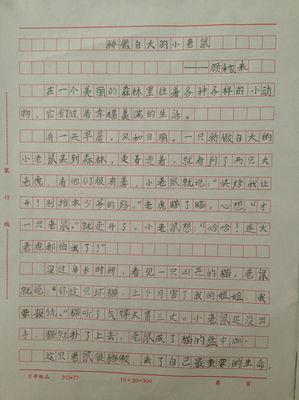 骄傲自大的小老鼠
在一个美丽的森林里住着各种各样的小动
物，它们过着幸福美满的生活。
有一天早晨，风和日丽。一只骄傲自大的
小老鼠来到森林，走着走着，就看到了两只大
老虎，看他们很有善，小老鼠就说：“快给我让
开！别挡本少爷的路。”老虎瞄了瞄，心想：“才
一只老鼠。”就走开了。小老鼠想：“哈哈！连大
老虎都怕我了！”
没过多长时间，看见一只凶恶的猫，老鼠
就说：“你这只坏猫，上个月害了我的姐姐，我
要报仇。”猫听了气得火冒三丈。小老鼠还没出
手，猫就扑了上去，老鼠成了猫的盘中
这只老鼠很骄傲，丢了自己最重要的生命。
装订线
15×20=300
第 页